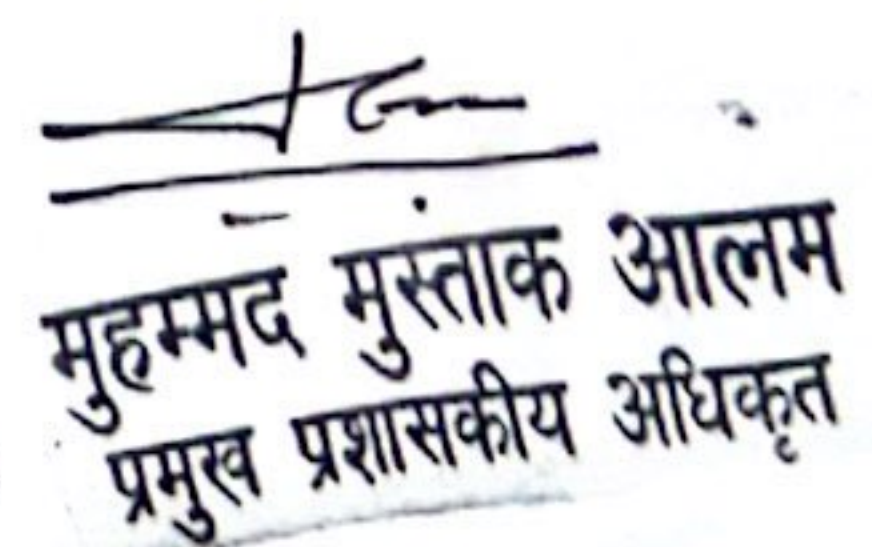 मुहम्मद मुस्ताक आलम
प्रमुख प्रशासकीय अधिकृत